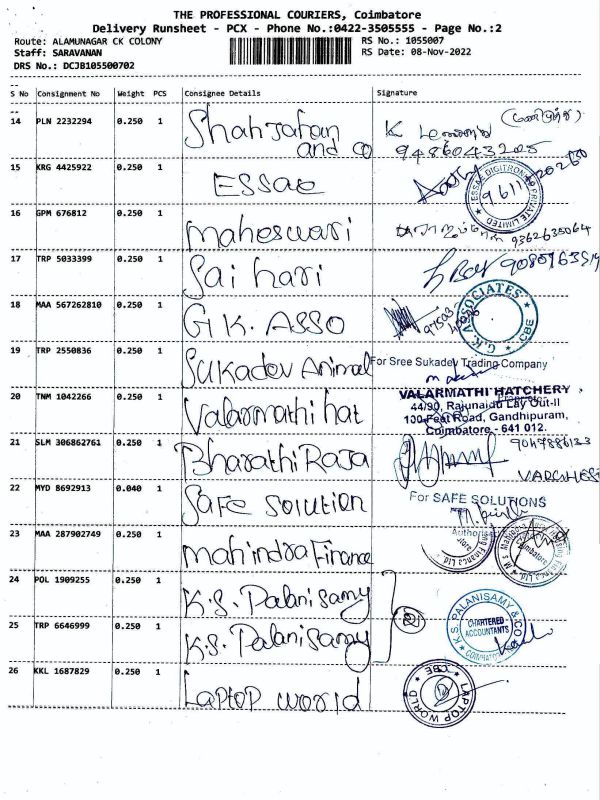 THE PROFESSIONAL COURIERS, Coimbatore
Delivery Runsheet - PCX - Phone No.:0422-3505555 - Page No.:2
Route: ALAMUNAGAR CK COLONY RS No.: 1055007
Staff: SARAVANAN RS Date: 08-Nov-2022
DRS No.: DCJB105500702
S No Consignment No Weight PCS Consignee Details Signature
14 PLN 2232294 0.250 1 Shahjahan
and co 9486043205
15 KRG 4425922 0.250 1 ESSae
ESSAE DIGITRONICS PRIVATE LIMITED
16 GPM 676812 0.250 1 maheswari 9362635064
17 TRP 5033399 0.250 1 Sai hari
18 MAA 567262810 0.250 1 G.K. ASSO
G.K. ASSOCIATES CBE
19 TRP 2550836 0.250 1 Sukadev Animal For Sree Sukadev Trading Company
20 TNM 1042266 0.250 1 Valarmathi hat VALARMATHI HATCHERY
44/90, Rajunaidu Lay Out-II
100-Feet Road, Gandhipuram,
Coimbatore - 641 012.
21 SLM 306862761 0.250 1 Bharathi Raja 9047886133
22 MYD 8692913 0.040 1 Safe Solution For SAFE SOLUTIONS
23 MAA 287902749 0.250 1 mahindra Finance
24 POL 1909255 0.250 1 K.S. Palanisamy
K.S. PALANISAMY & CO
CHARTERED
ACCOUNTANTS
COIMBATORE
25 TRP 6646999 0.250 1 K.S. Palanisamy
26 KKL 1687829 0.250 1 Laptop world
LAPTOP WORLD CBE